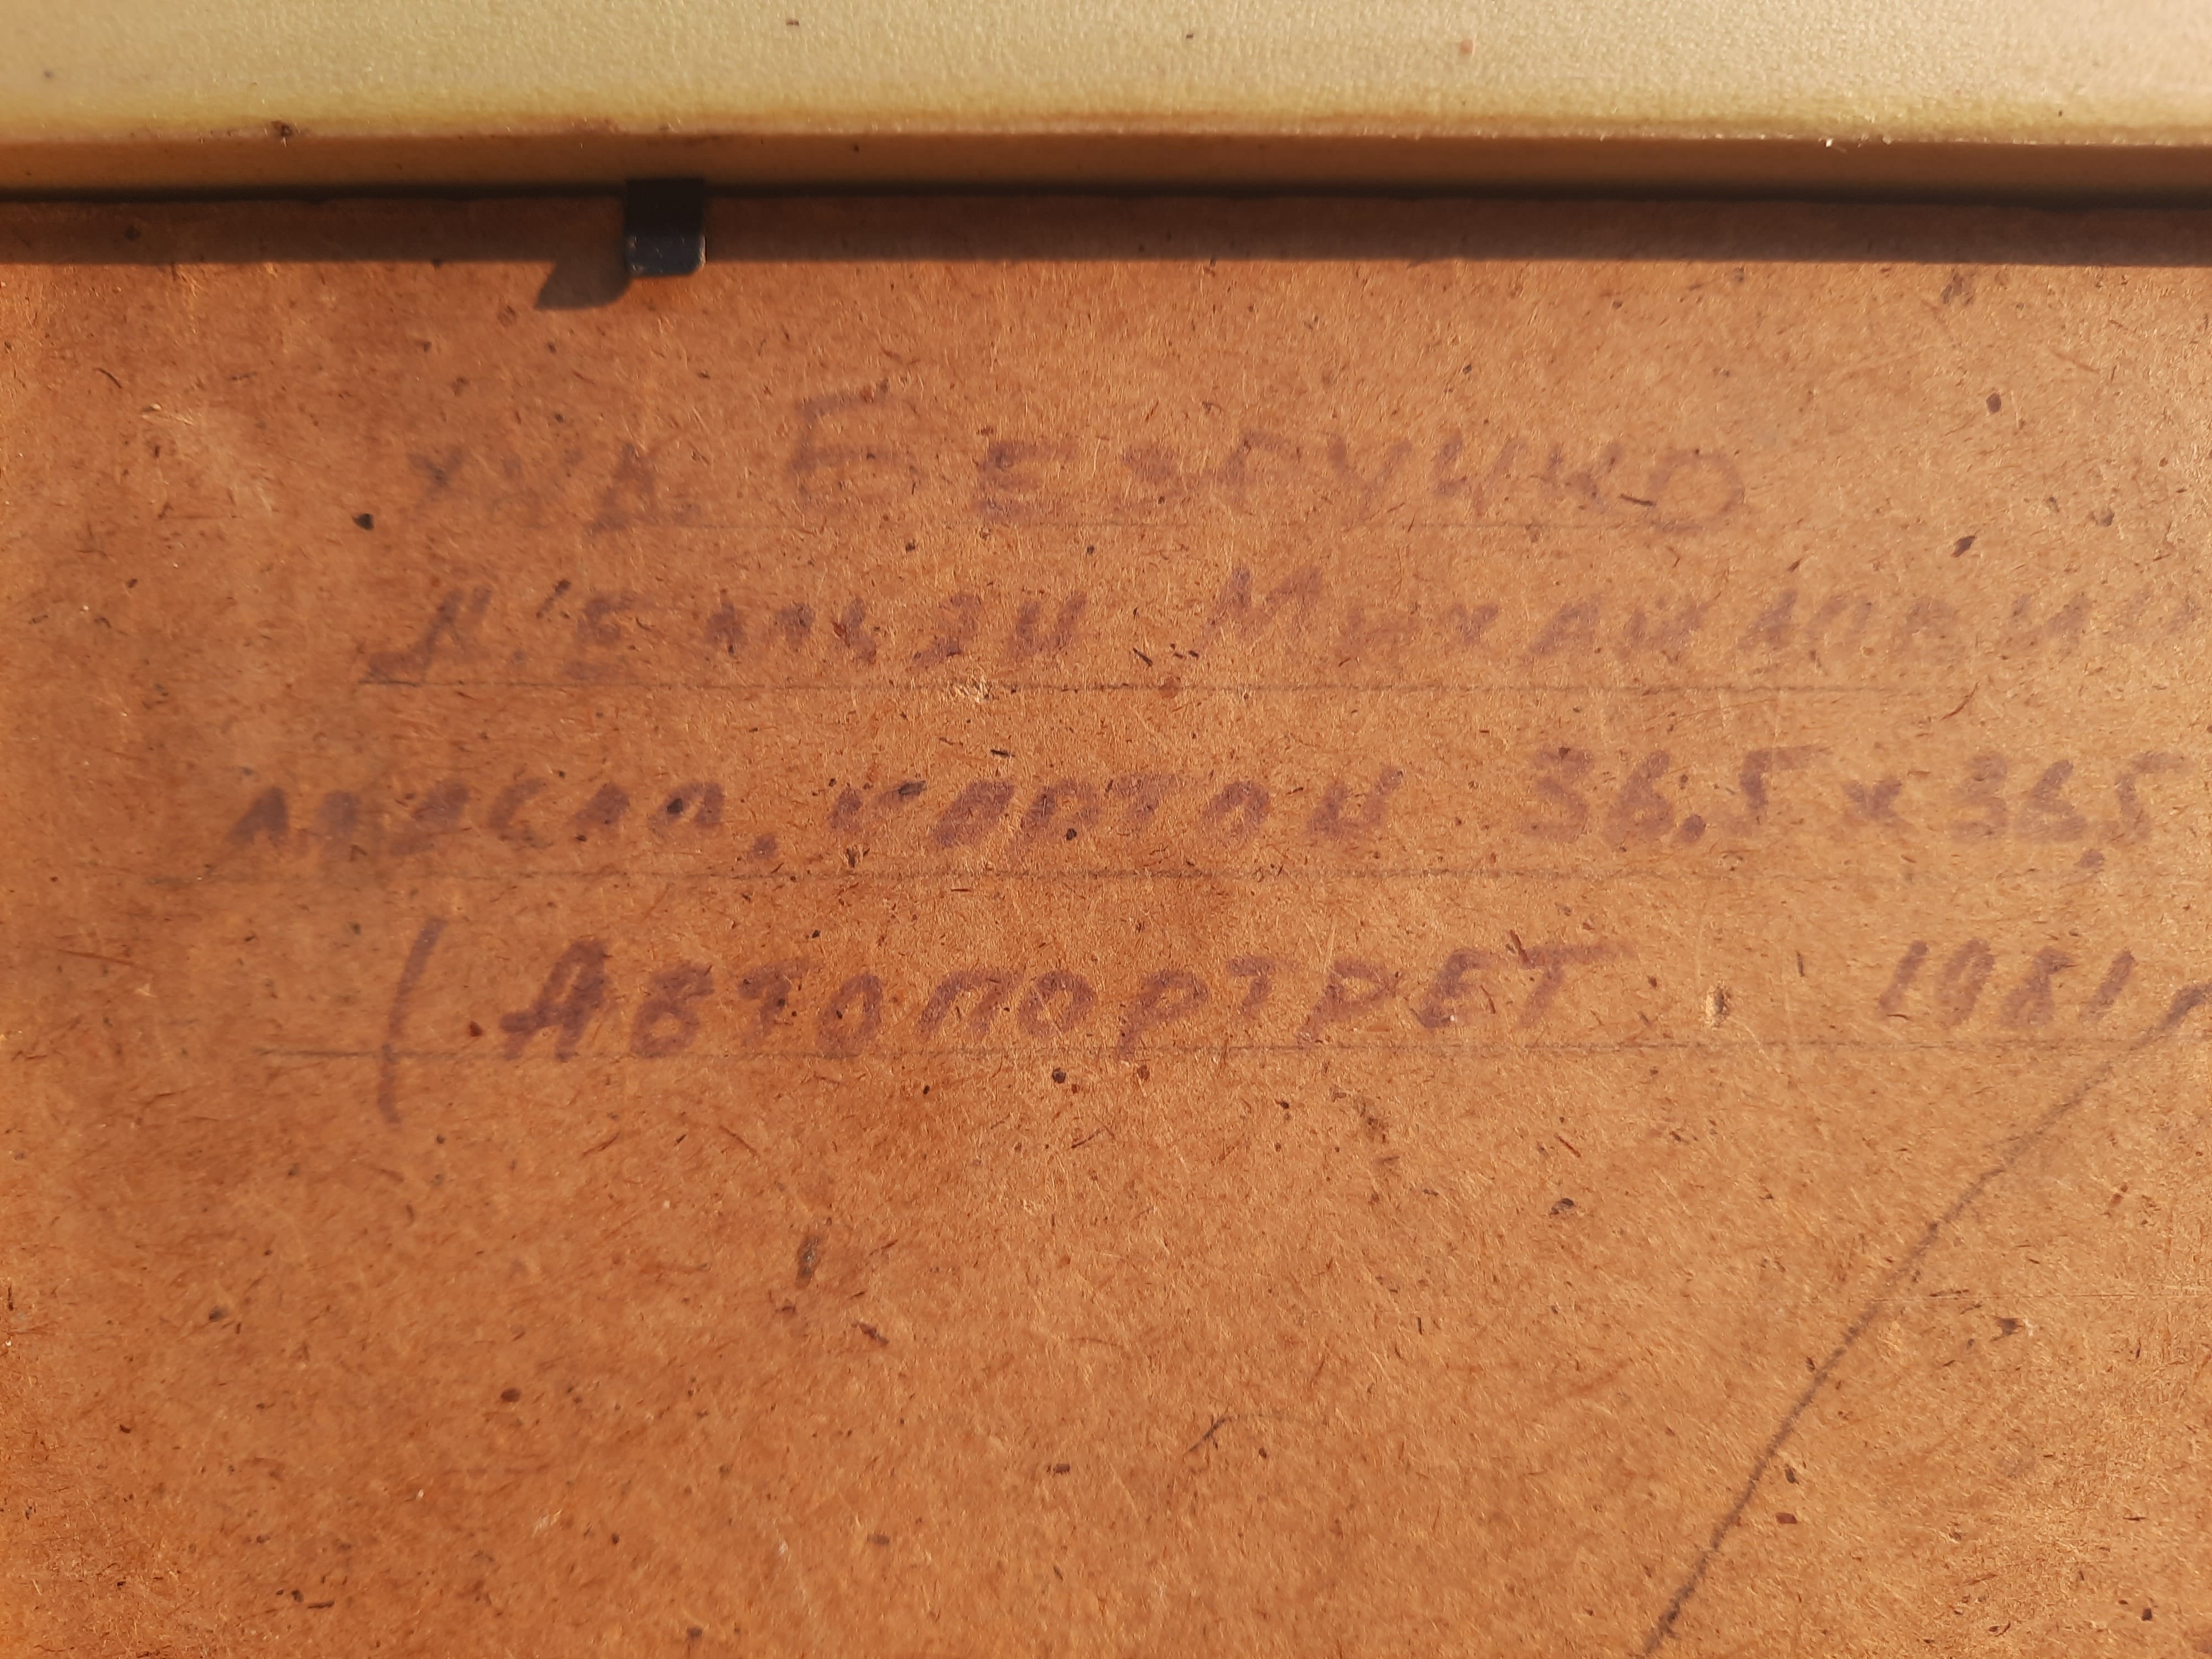 худ Безручко
Михайлович
масло, картон 36,5 х 36,5
(Автопортрет 1981 г